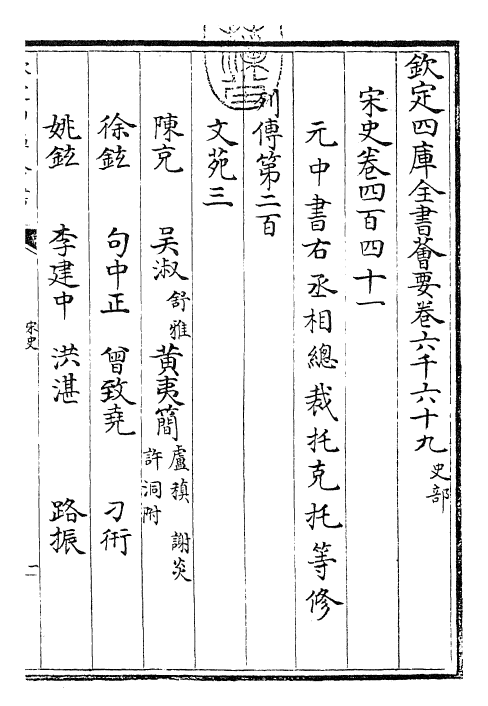 欽定四庫全書薈要卷六千六十九 史部
宋史卷四百四十一
元中書右丞相總裁托克托等修
列傳第二百
文苑三
陳充 吳淑 舒雅 黃夷簡 盧稹 謝炎 許洞附
徐鉉 句中正 曾致堯 刁衎
姚鉉 李建中 洪湛 路振
宋史